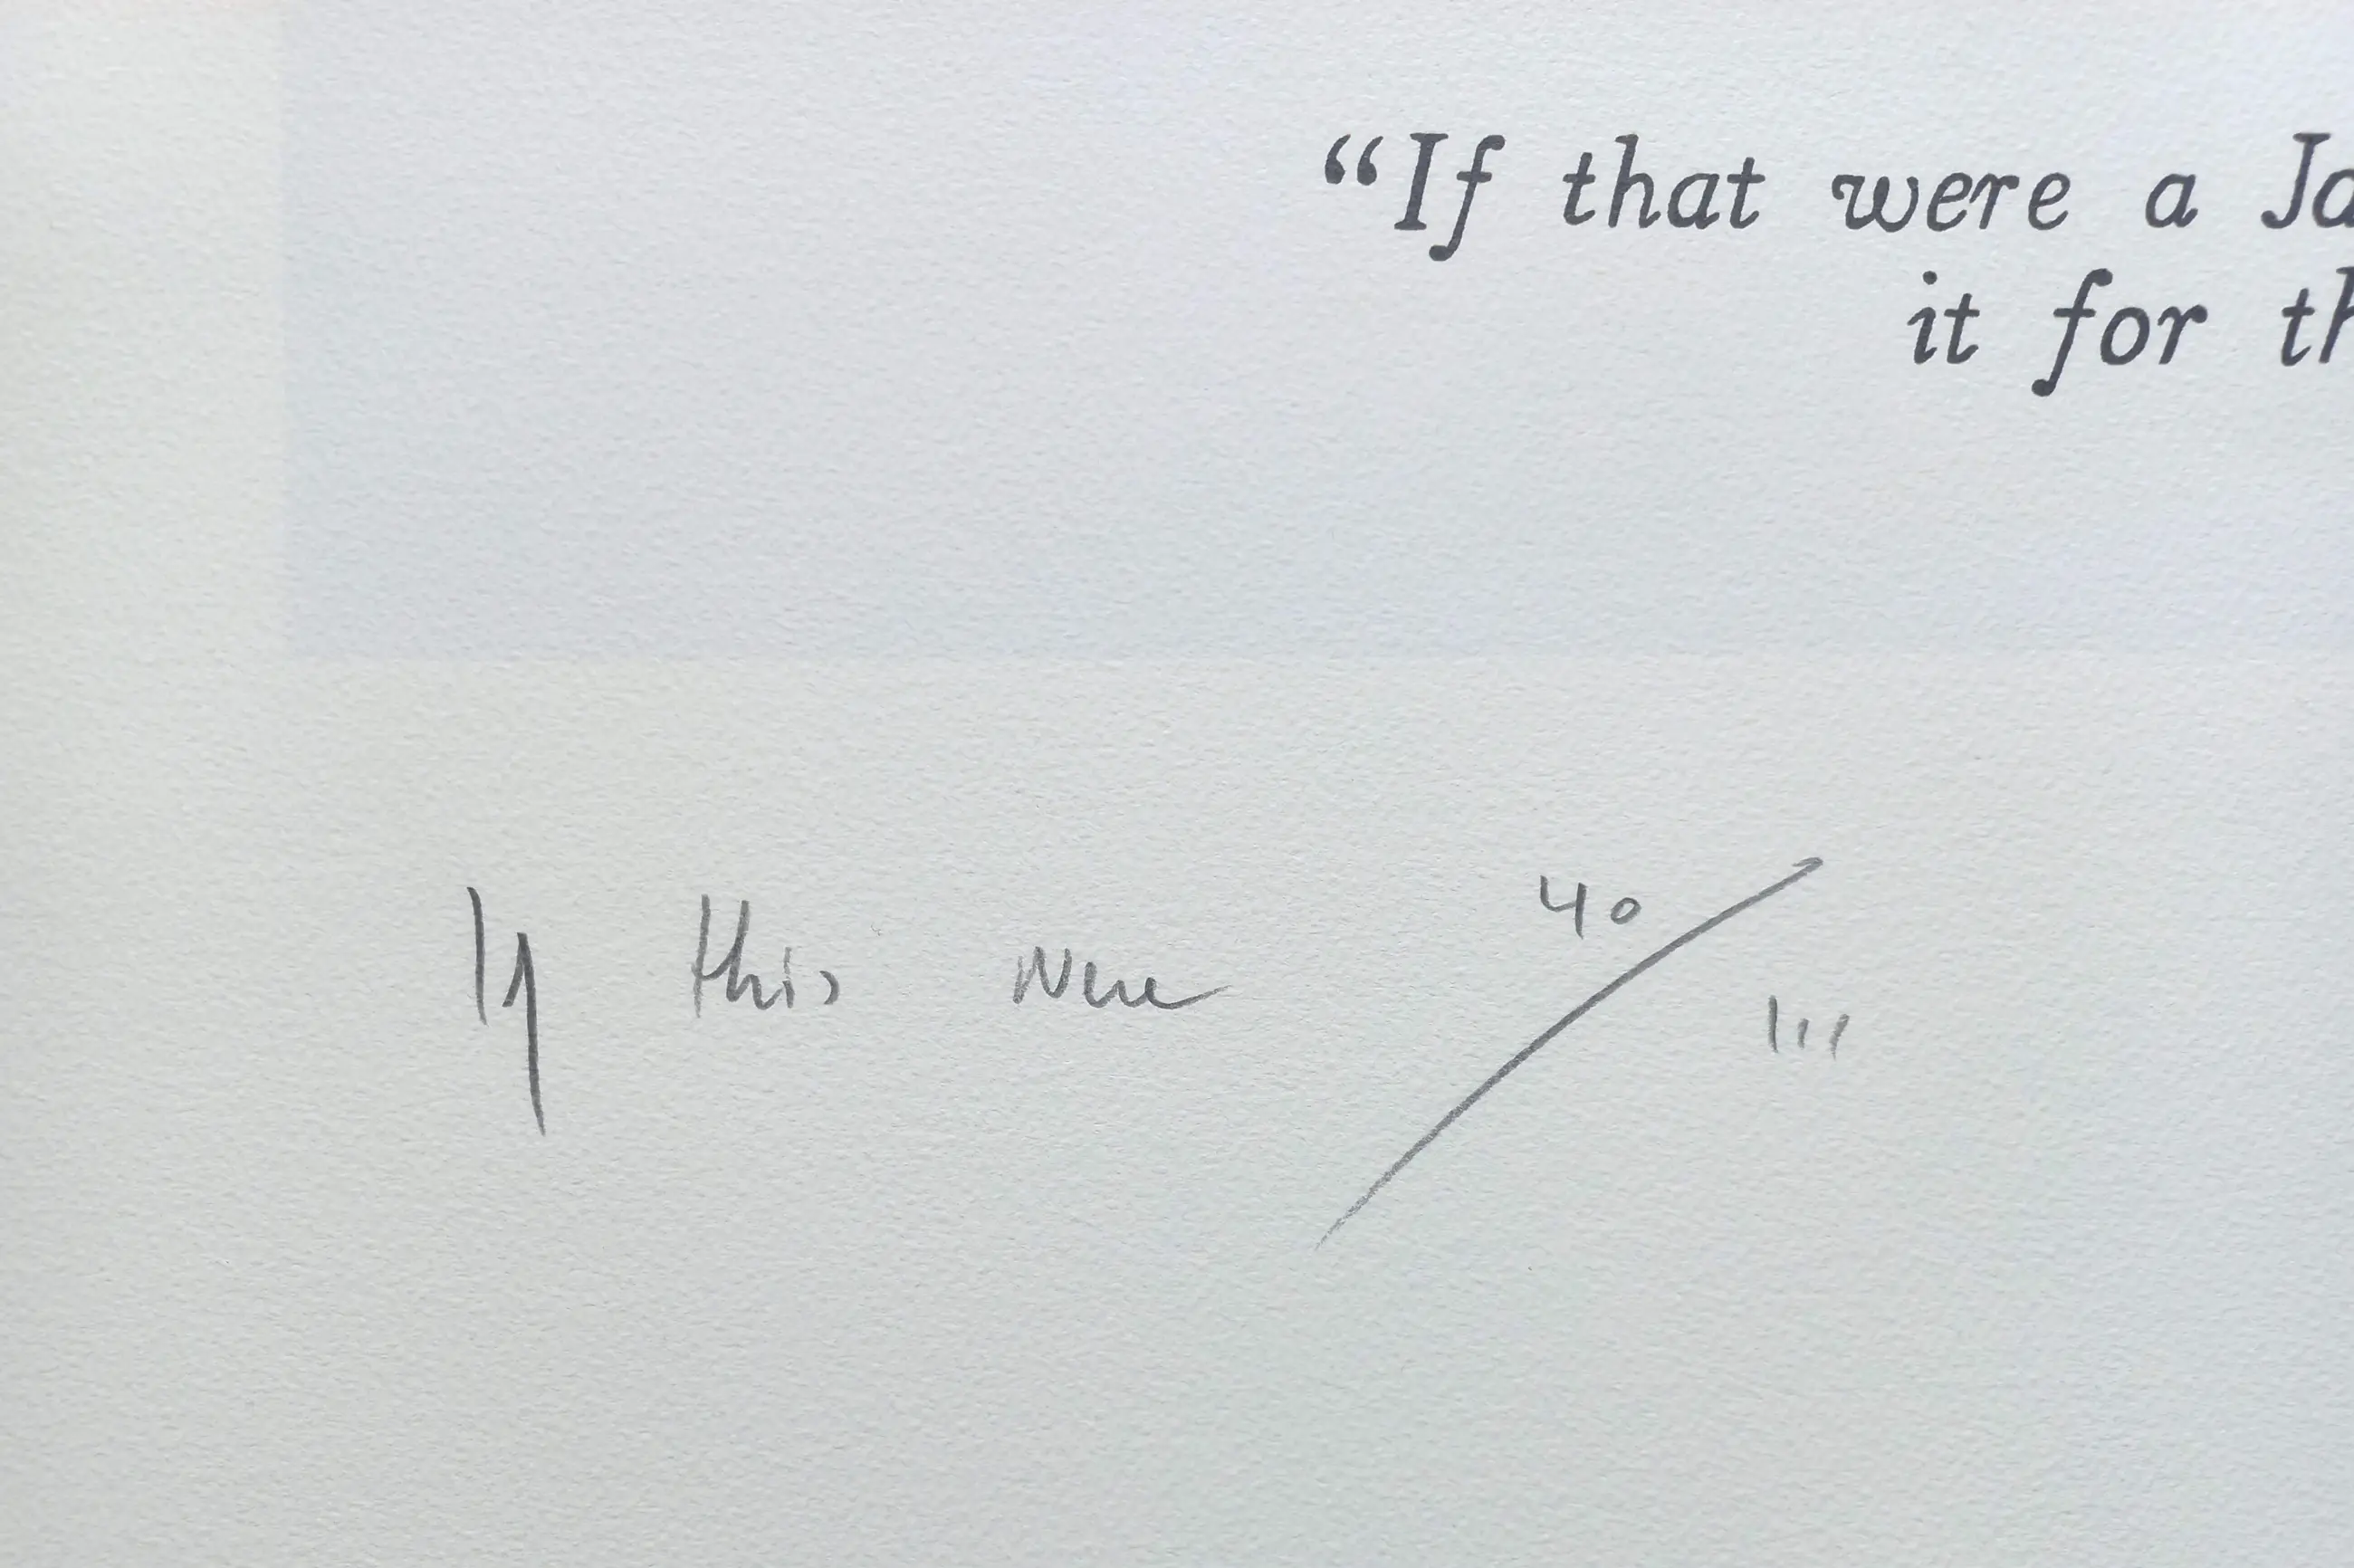 “If that were a Ja
it for th
If this were 40/111